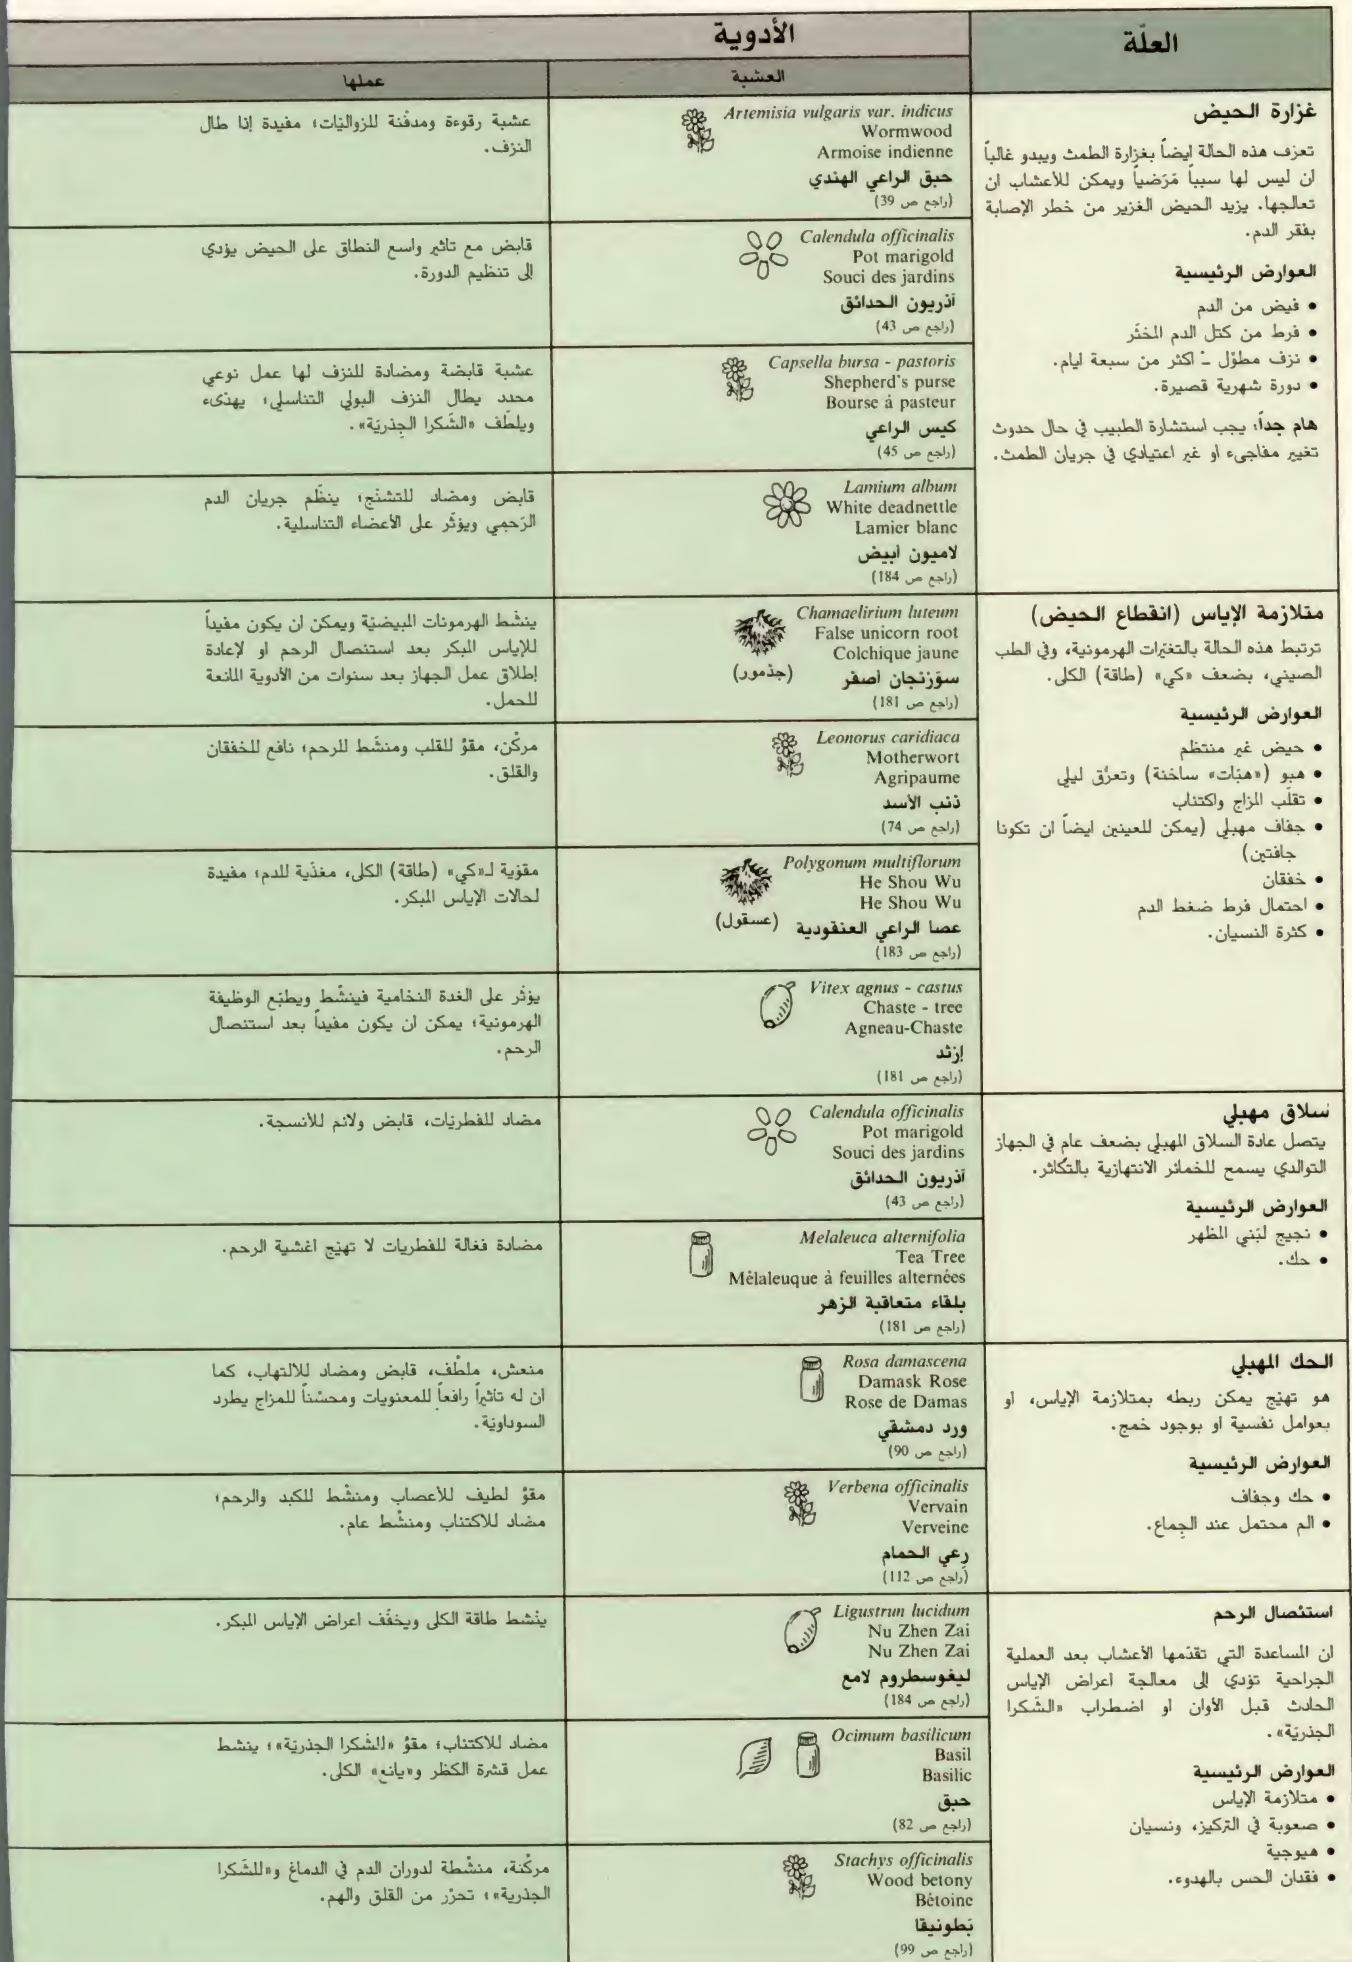 العلّة
الأدوية
العشبة
عملها
غزارة الحيض
تعرف هذه الحالة ايضاً بغزارة الطمث ويبدو غالباً
ان ليس لها سبباً مَرَضياً ويمكن للأعشاب ان
تعالجها. يزيد الحيض الغزير من خطر الإصابة
بفقر الدم.
العوارض الرئيسية
• فيض من الدم
• فرط من كتل الدم المخثّر
• نزف مطوّل ـ اكثر من سبعة ايام.
• دورة شهرية قصيرة.
هام جداً: يجب استشارة الطبيب في حال حدوث
تغيير مفاجىء او غير اعتيادي في جريان الطمث.
Artemisia vulgaris var. indicus
Wormwood
Armoise indienne
حبق الراعي الهندي
(راجع ص 39)
عشبة رقوءة ومدفّنة للزواليّات؛ مفيدة إذا طال
النزف.
Calendula officinalis
Pot marigold
Souci des jardins
آذريون الحدائق
(راجع ص 43)
قابض مع تاثير واسع النطاق على الحيض يؤدي
إلى تنظيم الدورة.
Capsella bursa - pastoris
Shepherd's purse
Bourse à pasteur
كيس الراعي
(راجع ص 45)
عشبة قابضة ومضادة للنزف لها عمل نوعي
محدد يطال النزف البولي التناسلي؛ يهدّىء
ويلطّف «الشَكرا الجِذريّة».
Lamium album
White deadnettle
Lamier blanc
لاميون أبيض
(راجع ص 184)
قابض ومضاد للتشنّج؛ ينظّم جريان الدم
الرَحمِي ويؤثّر على الأعضاء التناسلية.
متلازمة الإياس (انقطاع الحيض)
ترتبط هذه الحالة بالتغيّرات الهرمونية، وفي الطب
الصيني، بضعف «كي» (طاقة) الكلى.
العوارض الرئيسية
• حيض غير منتظم
• هبو («هبّات» ساخنة) وتعرُّق ليلي
• تقلّب المزاج واكتئاب
• جفاف مهبلي (يمكن للعينين ايضاً ان تكونا
جافتين)
• خفقان
• احتمال فرط ضغط الدم
• كثرة النسيان.
Chamaelirium luteum
False unicorn root
Colchique jaune
سوَرَنجان أصفر
(جذمور)
(راجع ص 181)
ينشّط الهرمونات المبيضيّة ويمكن ان يكون مفيداً
للإياس المبكر بعد استئصال الرحم او لإعادة
إطلاق عمل الجهاز بعد سنوات من الأدوية المانعة
للحمل.
Leonorus caridiaca
Motherwort
Agripaume
ذنب الأسد
(راجع ص 74)
مركّن، مقوٍّ للقلب ومنشّط للرحم؛ نافع للخفقان
والقلق.
Polygonum multiflorum
He Shou Wu
He Shou Wu
عصا الراعي العنقودية
(عسقول)
(راجع ص 183)
مقوّية لـ«كي» (طاقة) الكلى، مغذّية للدم؛ مفيدة
لحالات الإياس المبكر.
Vitex agnus - castus
Chaste - tree
Agneau-Chaste
إرْثد
(راجع ص 181)
يؤثّر على الغدة النخامية فينشّط ويطبّع الوظيفة
الهرمونية؛ يمكن ان يكون مفيداً بعد استئصال
الرحم.
سلاق مهبلي
يتصل عادة السلاق المهبلي بضعف عام في الجهاز
التوالدي يسمح للخمائر الانتهازية بالتكاثر.
العوارض الرئيسية
• نجيج لَبَني المظهر
• حك.
Calendula officinalis
Pot marigold
Souci des jardins
آذريون الحدائق
(راجع ص 43)
مضاد للفطريّات، قابض ولائم للأنسجة.
Melaleuca alternifolia
Tea Tree
Mélaleuque à feuilles alternées
بلقاء متعاقبة الزهر
(راجع ص 181)
مضادة فعّالة للفطريات لا تهيّج اغشية الرحم.
الحك المهبلي
هو تهيّج يمكن ربطه بمتلازمة الإياس، او
بعوامل نفسية او بوجود خمج.
العوارض الرئيسية
• حك وجفاف
• الم محتمل عند الجِماع.
Rosa damascena
Damask Rose
Rose de Damas
ورد دمشقي
(راجع ص 90)
منعش، ملطّف، قابض ومضاد للالتهاب، كما
ان له تاثيراً رافعاً للمعنويات ومحسّناً للمزاج يطرد
السوداويّة.
Verbena officinalis
Vervain
Verveine
رِعي الحمام
(راجع ص 112)
مقوٍّ لطيف للأعصاب ومنشّط للكبد والرحم؛
مضاد للاكتئاب ومنشّط عام.
استئصال الرحم
ان المساعدة التي تقدّمها الأعشاب بعد العملية
الجراحية تؤدي إلى معالجة اعراض الإياس
الحادث قبل الأوان او اضطراب «الشَكرا
الجذريّة».
العوارض الرئيسية
• متلازمة الإياس
• صعوبة في التركيز، ونسيان
• هيوجية
• فقدان الحس بالهدوء.
Ligustrun lucidum
Nu Zhen Zai
Nu Zhen Zai
ليغوسطروم لامع
(راجع ص 184)
ينُشط طاقة الكلى ويخفّف اعراض الإياس المبكر.
Ocimum basilicum
Basil
Basilic
حبق
(راجع ص 82)
مضاد للاكتئاب؛ مقوٍّ «للشَكرا الجذريّة»؛ ينشط
عمل قشرة الكظر و«يانغ» الكلى.
Stachys officinalis
Wood betony
Bétoine
بَطونيقا
(راجع ص 99)
مركّنة، منشّطة لدوران الدم في الدماغ و«للشَكرا
الجذرية»؛ تحرّر من القلق والهم.